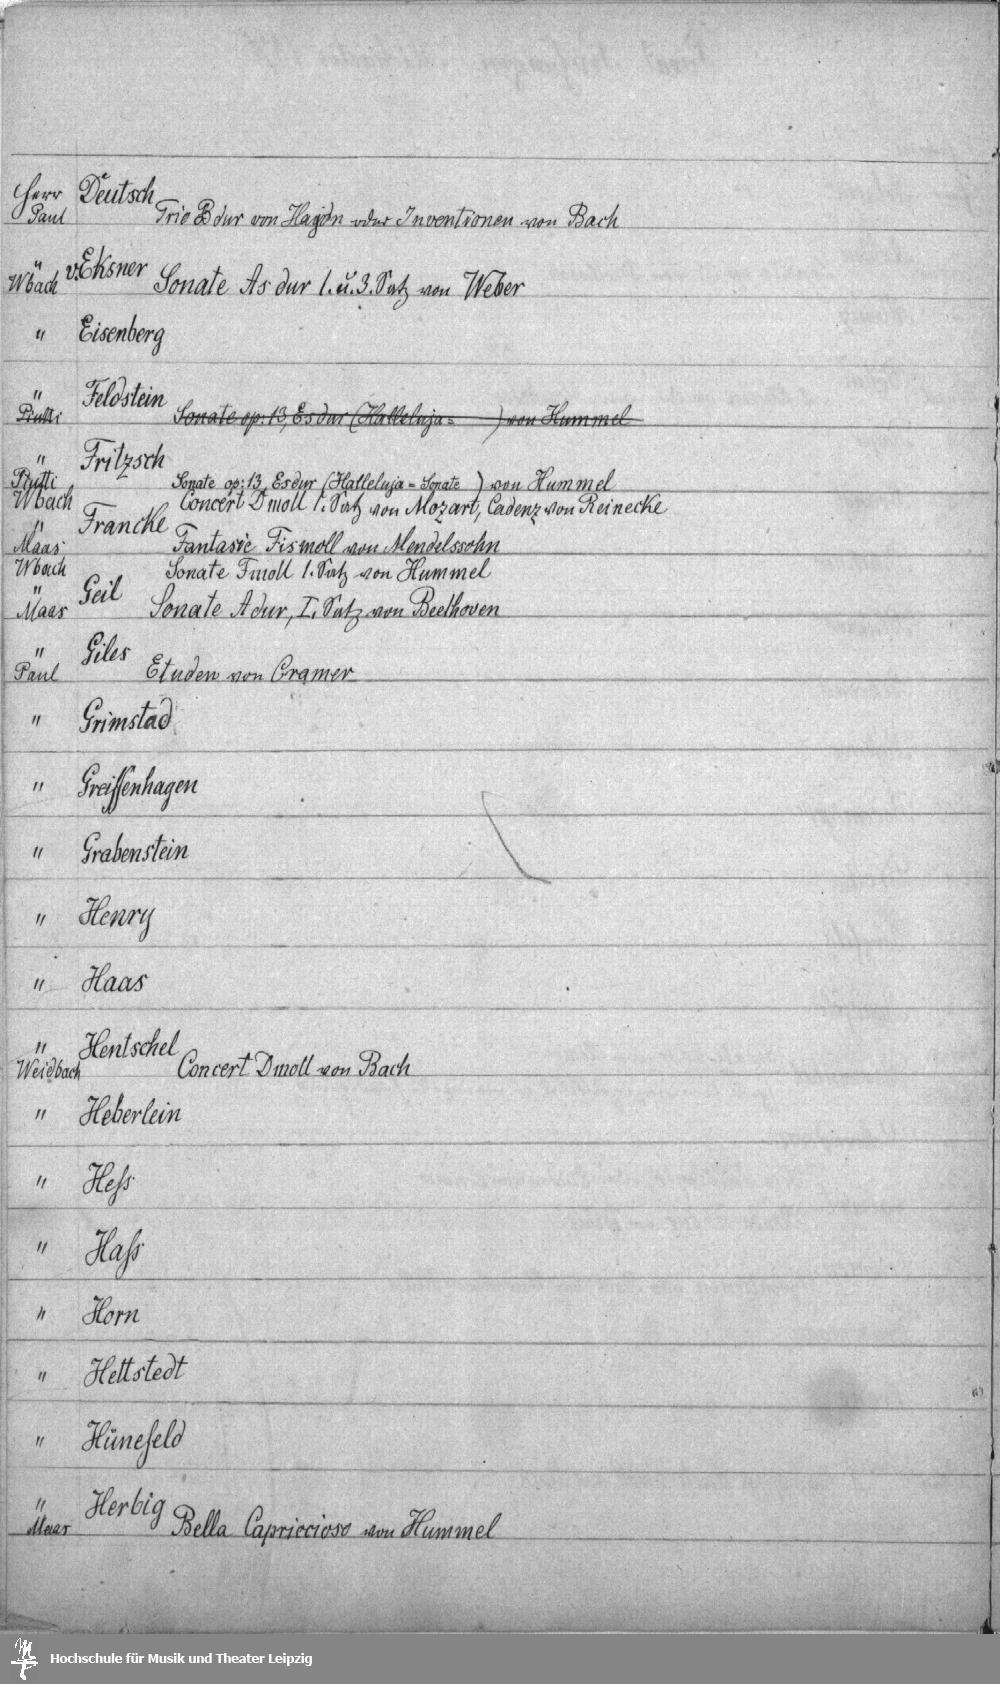 Herr Deutsch
Paul Trio B dur von Haydn oder Inventionen von Bach
" v. Eksner
Wbach Sonate As dur 1. u. 3. Satz von Weber
" Eisenberg
" Feldstein
Piutti Sonate op: 13, Es dur (Halleluja= ) von Hummel
" Fritzsch
Piutti Sonate op: 13 Esdur (Halleluja=Sonate ) von Hummel
Wbach Concert Dmoll 1. Satz von Mozart, Cadenz von Reinecke
" Francke
Maas Fantasie Fismoll von Mendelssohn
Wbach Sonate Fmoll 1. Satz von Hummel
" Geil
Maas Sonate Adur, I. Satz von Beethoven
" Giles
Paul Etuden von Cramer
" Grimstad
" Greiffenhagen
" Grabenstein
" Henry
" Haas
" Hentschel
Weidbach Concert Dmoll von Bach
" Heberlein
" Heſs
" Haſs
" Horn
" Hettstedt
" Hünefeld
" Herbig
Maas Bella Capriccioso von Hummel
Hochschule für Musik und Theater Leipzig